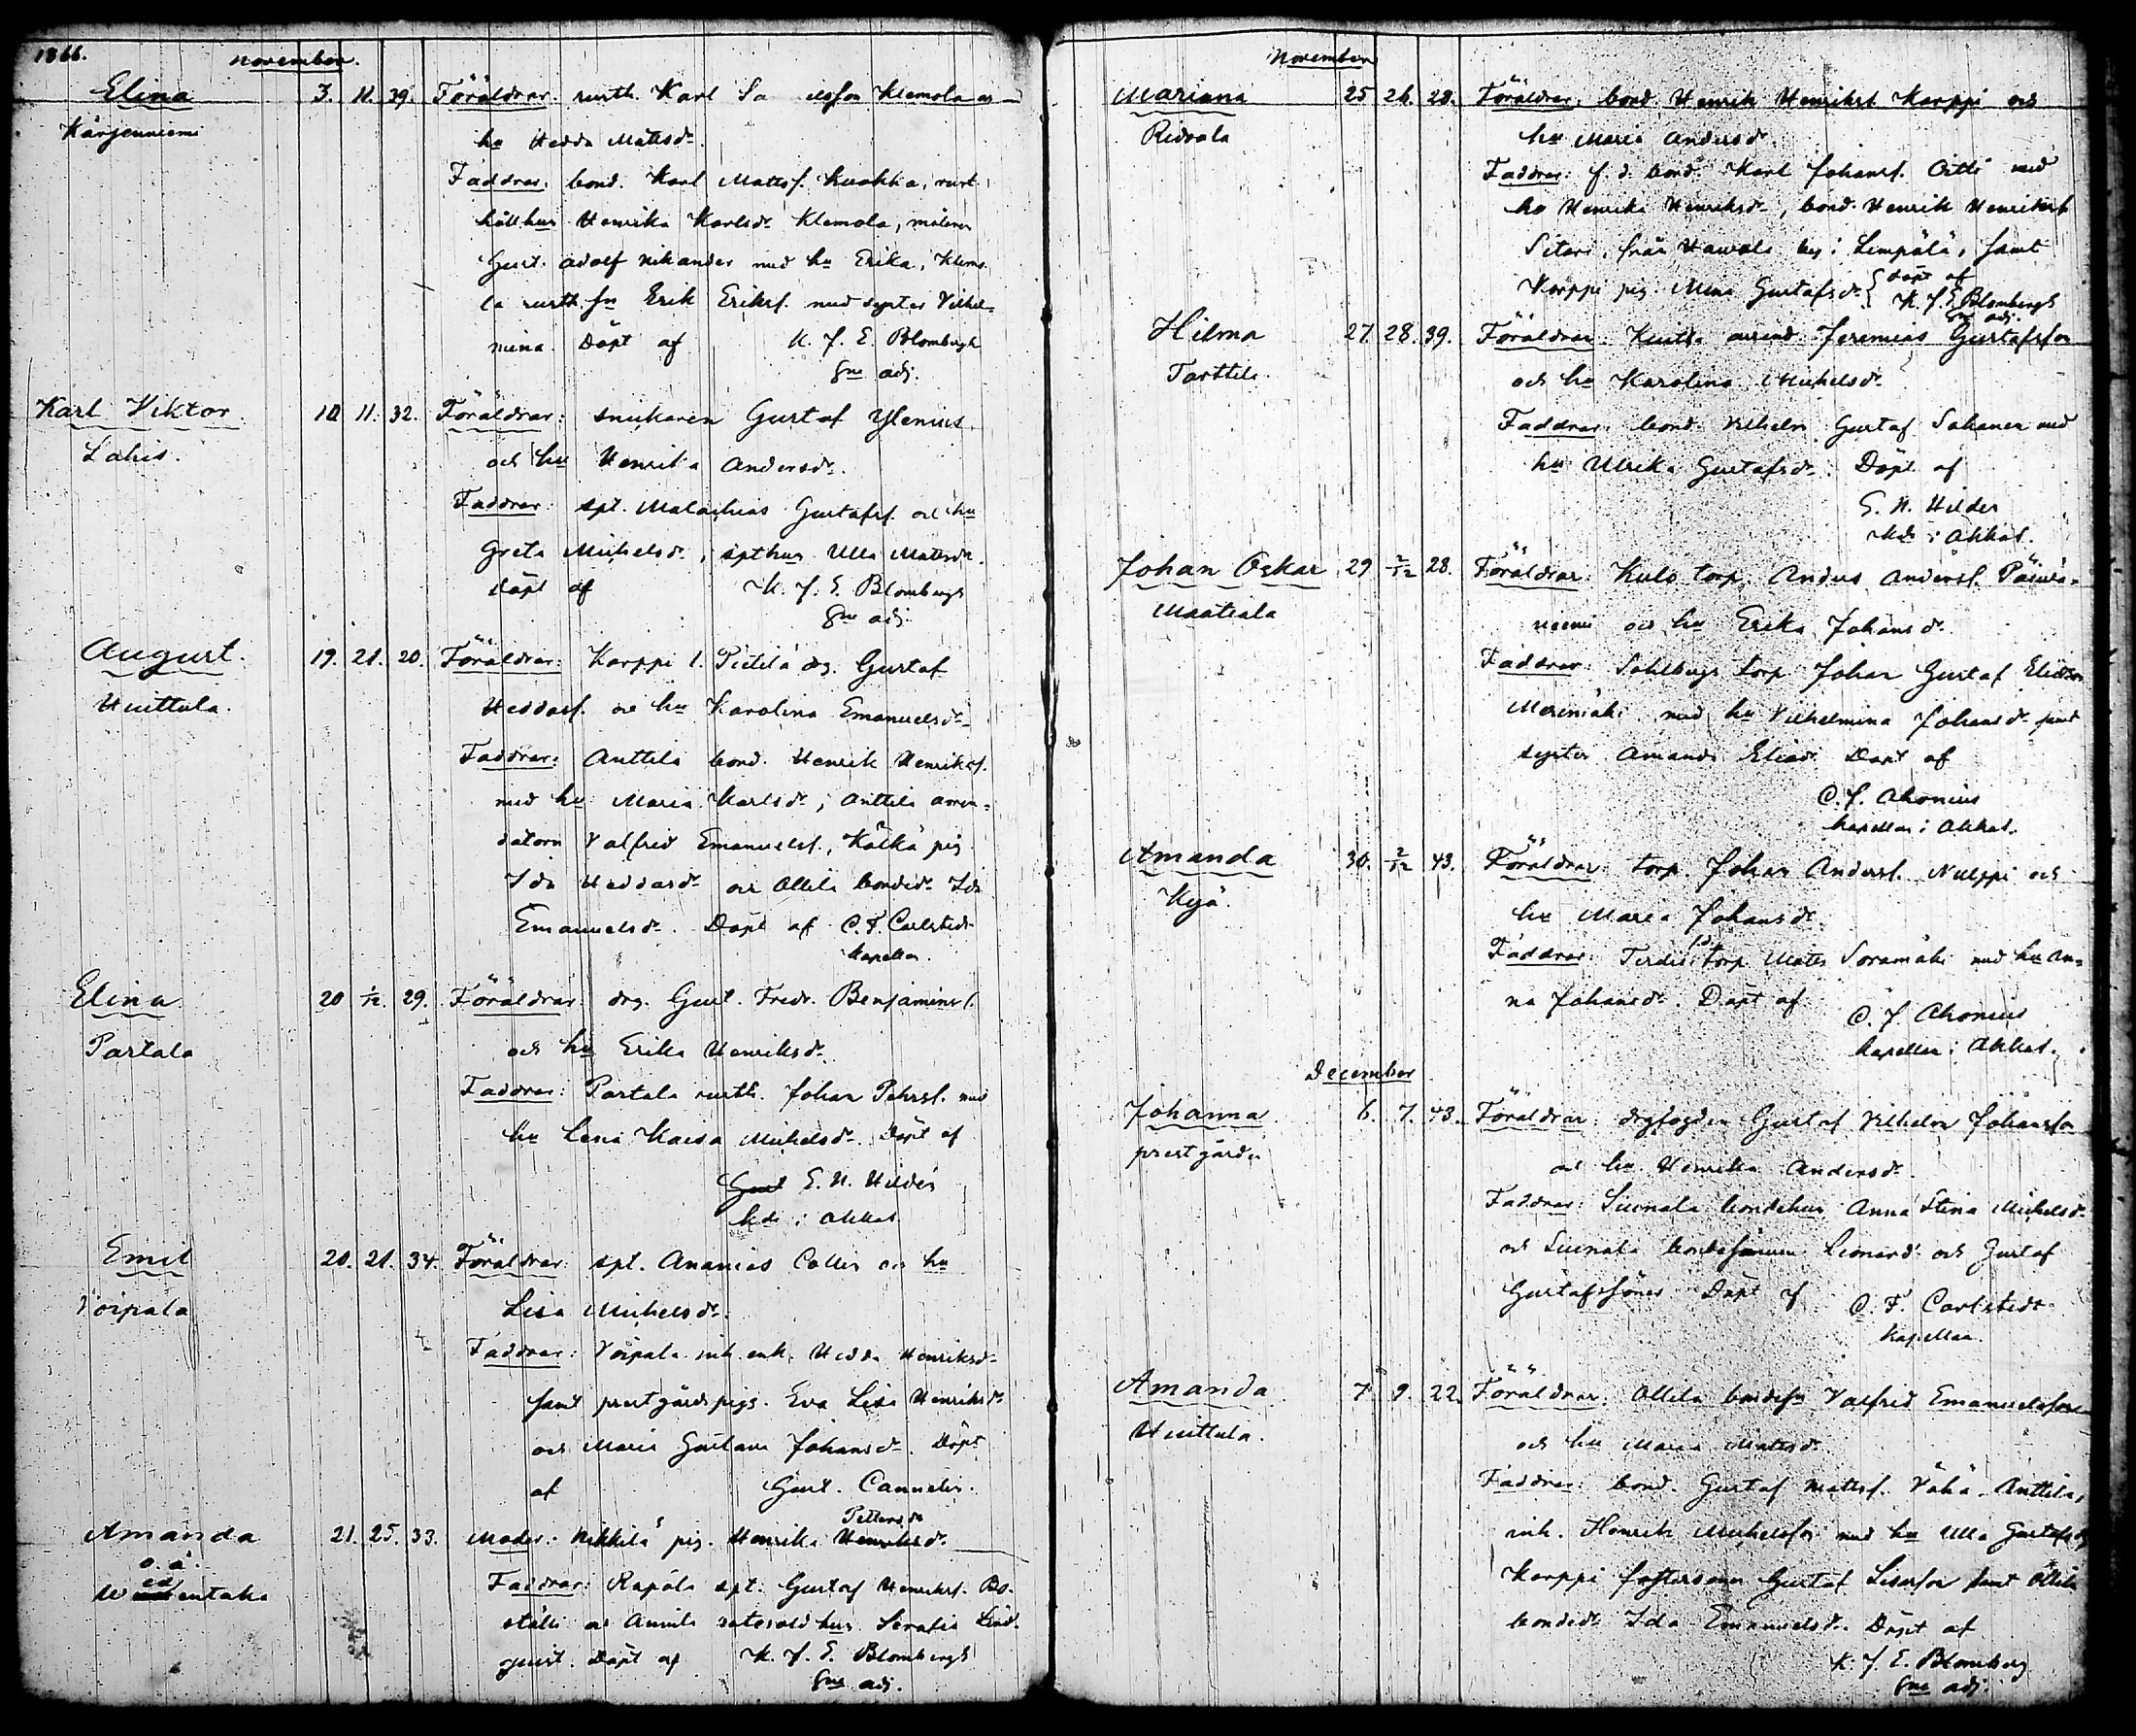 1866.
November.
Elina 3. 11. 39. Föräldrar: rusth. Karl Sa elsson Klemola o
Kärjenniemi hu Hedda Matsdr.
Faddrar: bond. Karl Matsf. Kuokka, rust
hållhus Henrika Karlsdr Klemola, målaren
Gust. Adolf Nikander med hu Erika, Klemo
la rusth. sn Erik Eriksf. med syster Vilhel-
mina. Döpt af K. J. E. Blombergh
gne adj.
Karl Viktor 10 11. 32. Föräldrar: snickaren Gustaf Ylenius
Lahis. och hu Henrika Andersdr.
Faddrar: spt. Malachias Gustafsf. och hu
Greta Michelsdr, spthus Ulla Matsdr.
Döpt af K. J. E. Blombergh
gne adj.
August. 19. 21. 20. Föräldrar: Karppi l. Pietilä drg. Gustaf
Huittula. Heddasf. och hu Karolina Emanuelsdr
Faddrar: Anttila bond. Henrik Henriksf.
med hu Maria Karlsdr, Anttila arren-
datorn Valfrid Emanuelsf., Kälkä pig.
Ida Heddasdr och Ollila bondedr Ida
Emanuelsdr. Döpt af C. F. Carlstedt
kapellan.
Elina 20 1/12. 29. Föräldrar: drg. Gust. Fredr. Benjaminsf.
Partala och hu Erika Henriksdr.
Faddrar: Partala rusth. Johan Pehrsf. med
hu Lena Kaisa Michelsdr. Döpt af
Gust E. H. Hildén
kde i Akkas
Emil 20. 21. 34. Föräldrar: spt. Ananias Collin och hu
Voipala Lisa Michelsdr.
Faddrar: Voipala inh. enk. Hedda Henriksdr
samt prestgårds pigs. Eva Lisa Henriksdr
och Maria Gustava Johansdr. Döpt
af Gust. Cannelin.
Pettersdr
Amanda 21. 25. 33. Moder: Nikkilä pig. Henrika Henriksdr.
o. ä. Faddrar: Rapola spt. Gustaf Henriksf. Bo-
ställe och Annila rotesold hus Serafia Lind-
quist. Döpt af K. J. E. Blombergh
gne adj.
November
Mariana 25 26. 28. Föräldrar: bond. Henrik Henriksf. Karppi och
Ridvala hu Maria Andersdr.
Faddrar: f. d. bond. Karl Johansf. Oitti med
hu Henrika Henriksdr, bond. Henrik Henriksf.
Sitari, från Hawala by i Lempälä, samt
Karppi pig. Mina Gustafsdr. Döpt af
K. J. E. Blombergh
gne adj.
Hilma 27. 28. 39. Föräldrar: arrend. Jeremias Gustafsson
Tarttila. och hu Karolina Michelsdr.
Faddrar: bond. Vilhelm Gustaf Sahanen med
hu Ulrika Gustafsdr. Döpt af
E. H. Hildén
kde i Akkas.
Johan Oskar 29 2/12 28. Föräldrar: Kulo torp. Anders Andersf. Päivä-
Maatiala niemi och hu Erika Johansdr.
Faddrar: Sohlbergs torp. Johan Gustaf Eliasson
med hu Vilhelmina Johansdr samt
syster Amanda Eliasdr. Döpt af
C. J. Ahonius
kapellan i Akkas.
Amanda 30. 2/12 43. Föräldrar: torp. Johan Andersf. Nulppi och
Kyä. hu Maria Johansdr.
Faddrar: f.d. torp. Mats Soramäki med hu An-
na Johansdr. Döpt af
C. J. Ahonius
kapellan i Akkas.
December
Johanna 6. 7. 43. Föräldrar: drgfogden Gustaf Vilhelm Johansson
prestgården och hu Henrika Andersdr.
Faddrar: Suinala bondehus Anna Stina Michelsdr
och Suinala bondesönerna Leonard och Gustaf
Gustafssöner Döpt af C. F. Carlstedt
Kapellan.
Amanda 7. 9. 22. Föräldrar: Ollila bondesn Valfrid Emanuelsson
Huittula. och hu Maria Matsdr.
Faddrar: bond. Gustaf Matsf. Vähä-Anttila,
inh. Henrik Michelsson med hu Ulla Gustafsdr
Karppi fosterson Gustaf samt Ollila
bondedr Ida Emanuelsdr. Döpt af
K. J. E. Blomberg
gne adj.